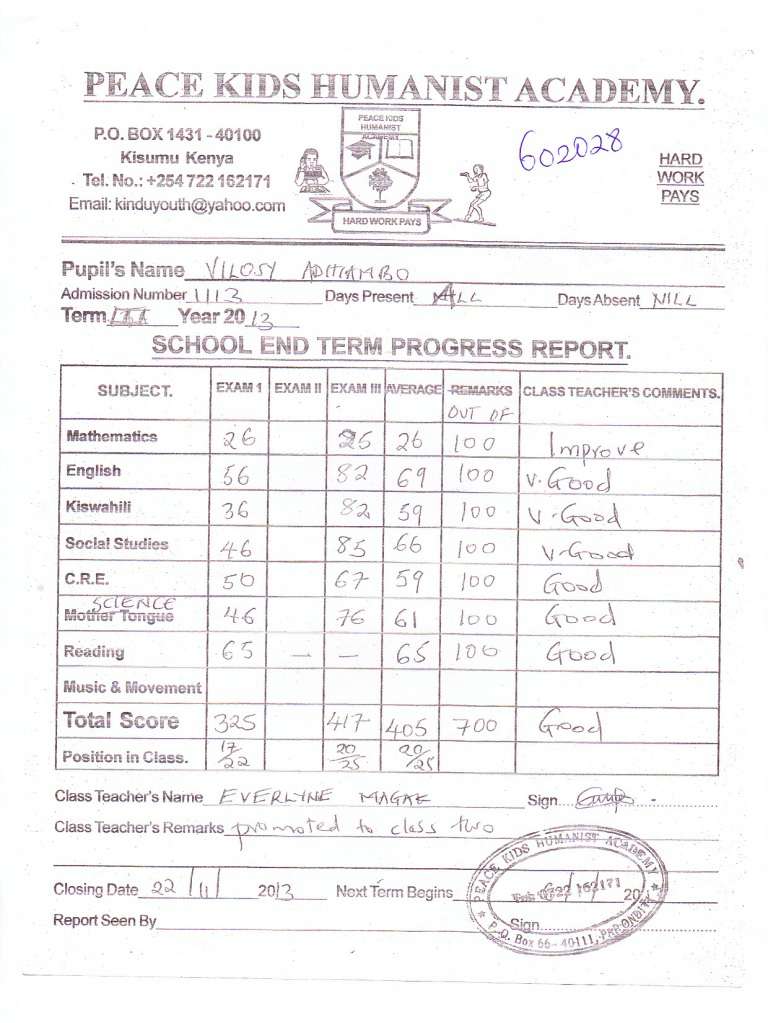 PEACE KIDS HUMANIST ACADEMY.
P.O. BOX 1431 - 40100
Kisumu Kenya
Tel. No.: +254 722 162171
Email: kinduyouth@yahoo.com
PEACE KIDS
HUMANIST
ACADEMY
HARD WORK PAYS
602028
HARD
WORK
PAYS
Pupil's Name VILOSY ADHIAMBO
Admission Number 1113 Days Present ALL Days Absent NILL
Term III Year 2013
SCHOOL END TERM PROGRESS REPORT.
SUBJECT. EXAM 1 EXAM II EXAM III AVERAGE REMARKS CLASS TEACHER'S COMMENTS.
OUT OF
Mathematics 26 25 26 100 Improve
English 56 82 69 100 V. Good
Kiswahili 36 82 59 100 V-Good
Social Studies 46 85 66 100 V-Good
C.R.E. 50 67 59 100 Good
SCIENCE
Mother Tongue 46 76 61 100 Good
Reading 65 — — 65 100 Good
Music & Movement
Total Score 325 417 405 700 Good
Position in Class. 17/22 20/25 20/25
Class Teacher's Name EVERLYNE MAGAE Sign....
Class Teacher's Remarks promoted to class two
Closing Date 22/11/ 2013 Next Term Begins 20
Report Seen By Sign
PEACE KIDS HUMANIST ACADEMY
0722 162171
P.O. Box 66 - 40111,